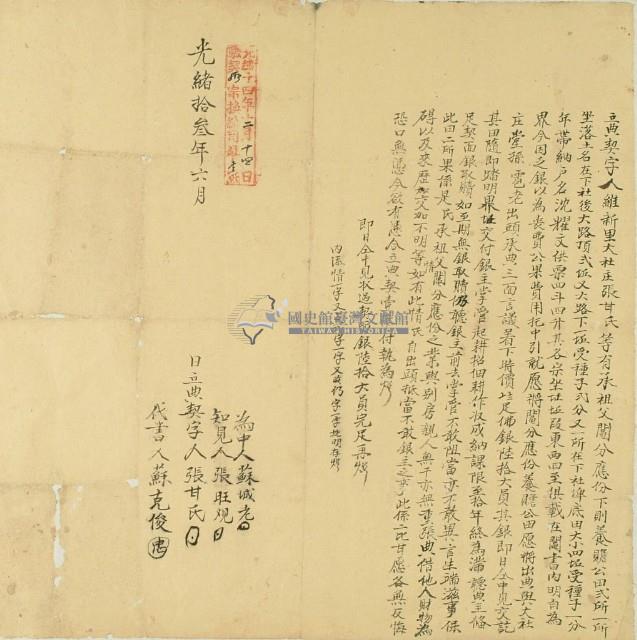 立典契字人維新里大社庄張甘氏等有承祖父鬮分應份下則養贍公田弍所一所
坐落土名在下社後大路頂弍坵又大路下一坵受種子 分又一所在下社埤底田大小四坵受種子一分
年帶納戶名沈耀文供粟四斗四升其各宗坐址坵段東西四至俱載在鬮書內明白為
界今因乏銀以為喪費公業費用托中引就愿將鬮分應份養贍公田愿將出典與大社
庄堂孫 老出頭承典三面言議著下時價 足佛銀陸拾大員其銀即日仝中見交訖
其田隨即踏明界址交付銀主掌管起耕招佃耕作收成納課限至拾年終為滿聽典主備
足契面銀取贖如至期無銀取贖仍聽銀主前去掌管不敢阻當亦不敢異言生端滋事保
此田二所果係是氏承祖父鬮分應份之業與別房親人無干亦無重張典借他人財物為
碍以及來歷交加不明等情如有此情氏自出頭抵當不敢銀主之事此係二比甘愿各無反悔
恐口無憑今欲有憑今立典契壹 付執為炤
即日仝中見收過契 銀陸拾大員完足再炤
內添情一字又 字一字又改仍字一字批明存炤
為中人蘇城老
知見人張旺观
日立典契字人張甘氏
代書人蘇克俊
光緒拾叁年六月
光緒十四年二月十四日
國史館臺灣文獻館
TAIWAN HISTORICA